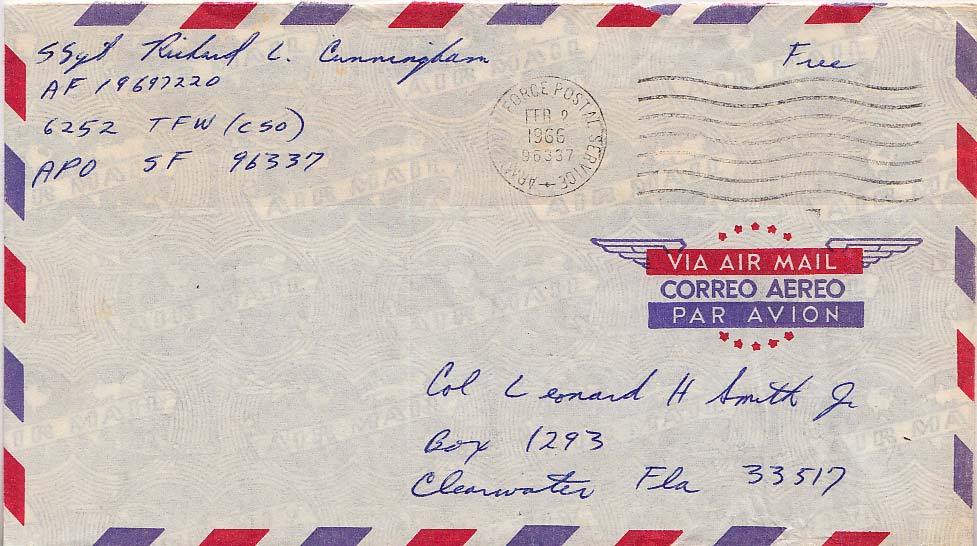 SSgt Richard L. Cunningham
AF 19697220
6252 TFW (CSO)
APO SF 96337
Free
ARMY FORCE POSTAL SERVICE
FEB 2
1966
96337
VIA AIR MAIL
CORREO AEREO
PAR AVION
Col Leonard H Smith Jr
Box 1293
Clearwater Fla 33517